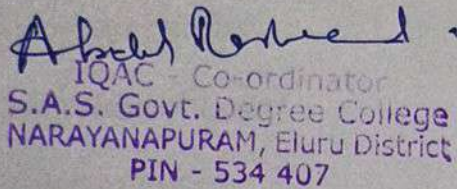 Abdul Rasheed
IQAC - Co-ordinator
S.A.S. Govt. Degree College
NARAYANAPURAM, Eluru District
PIN - 534 407